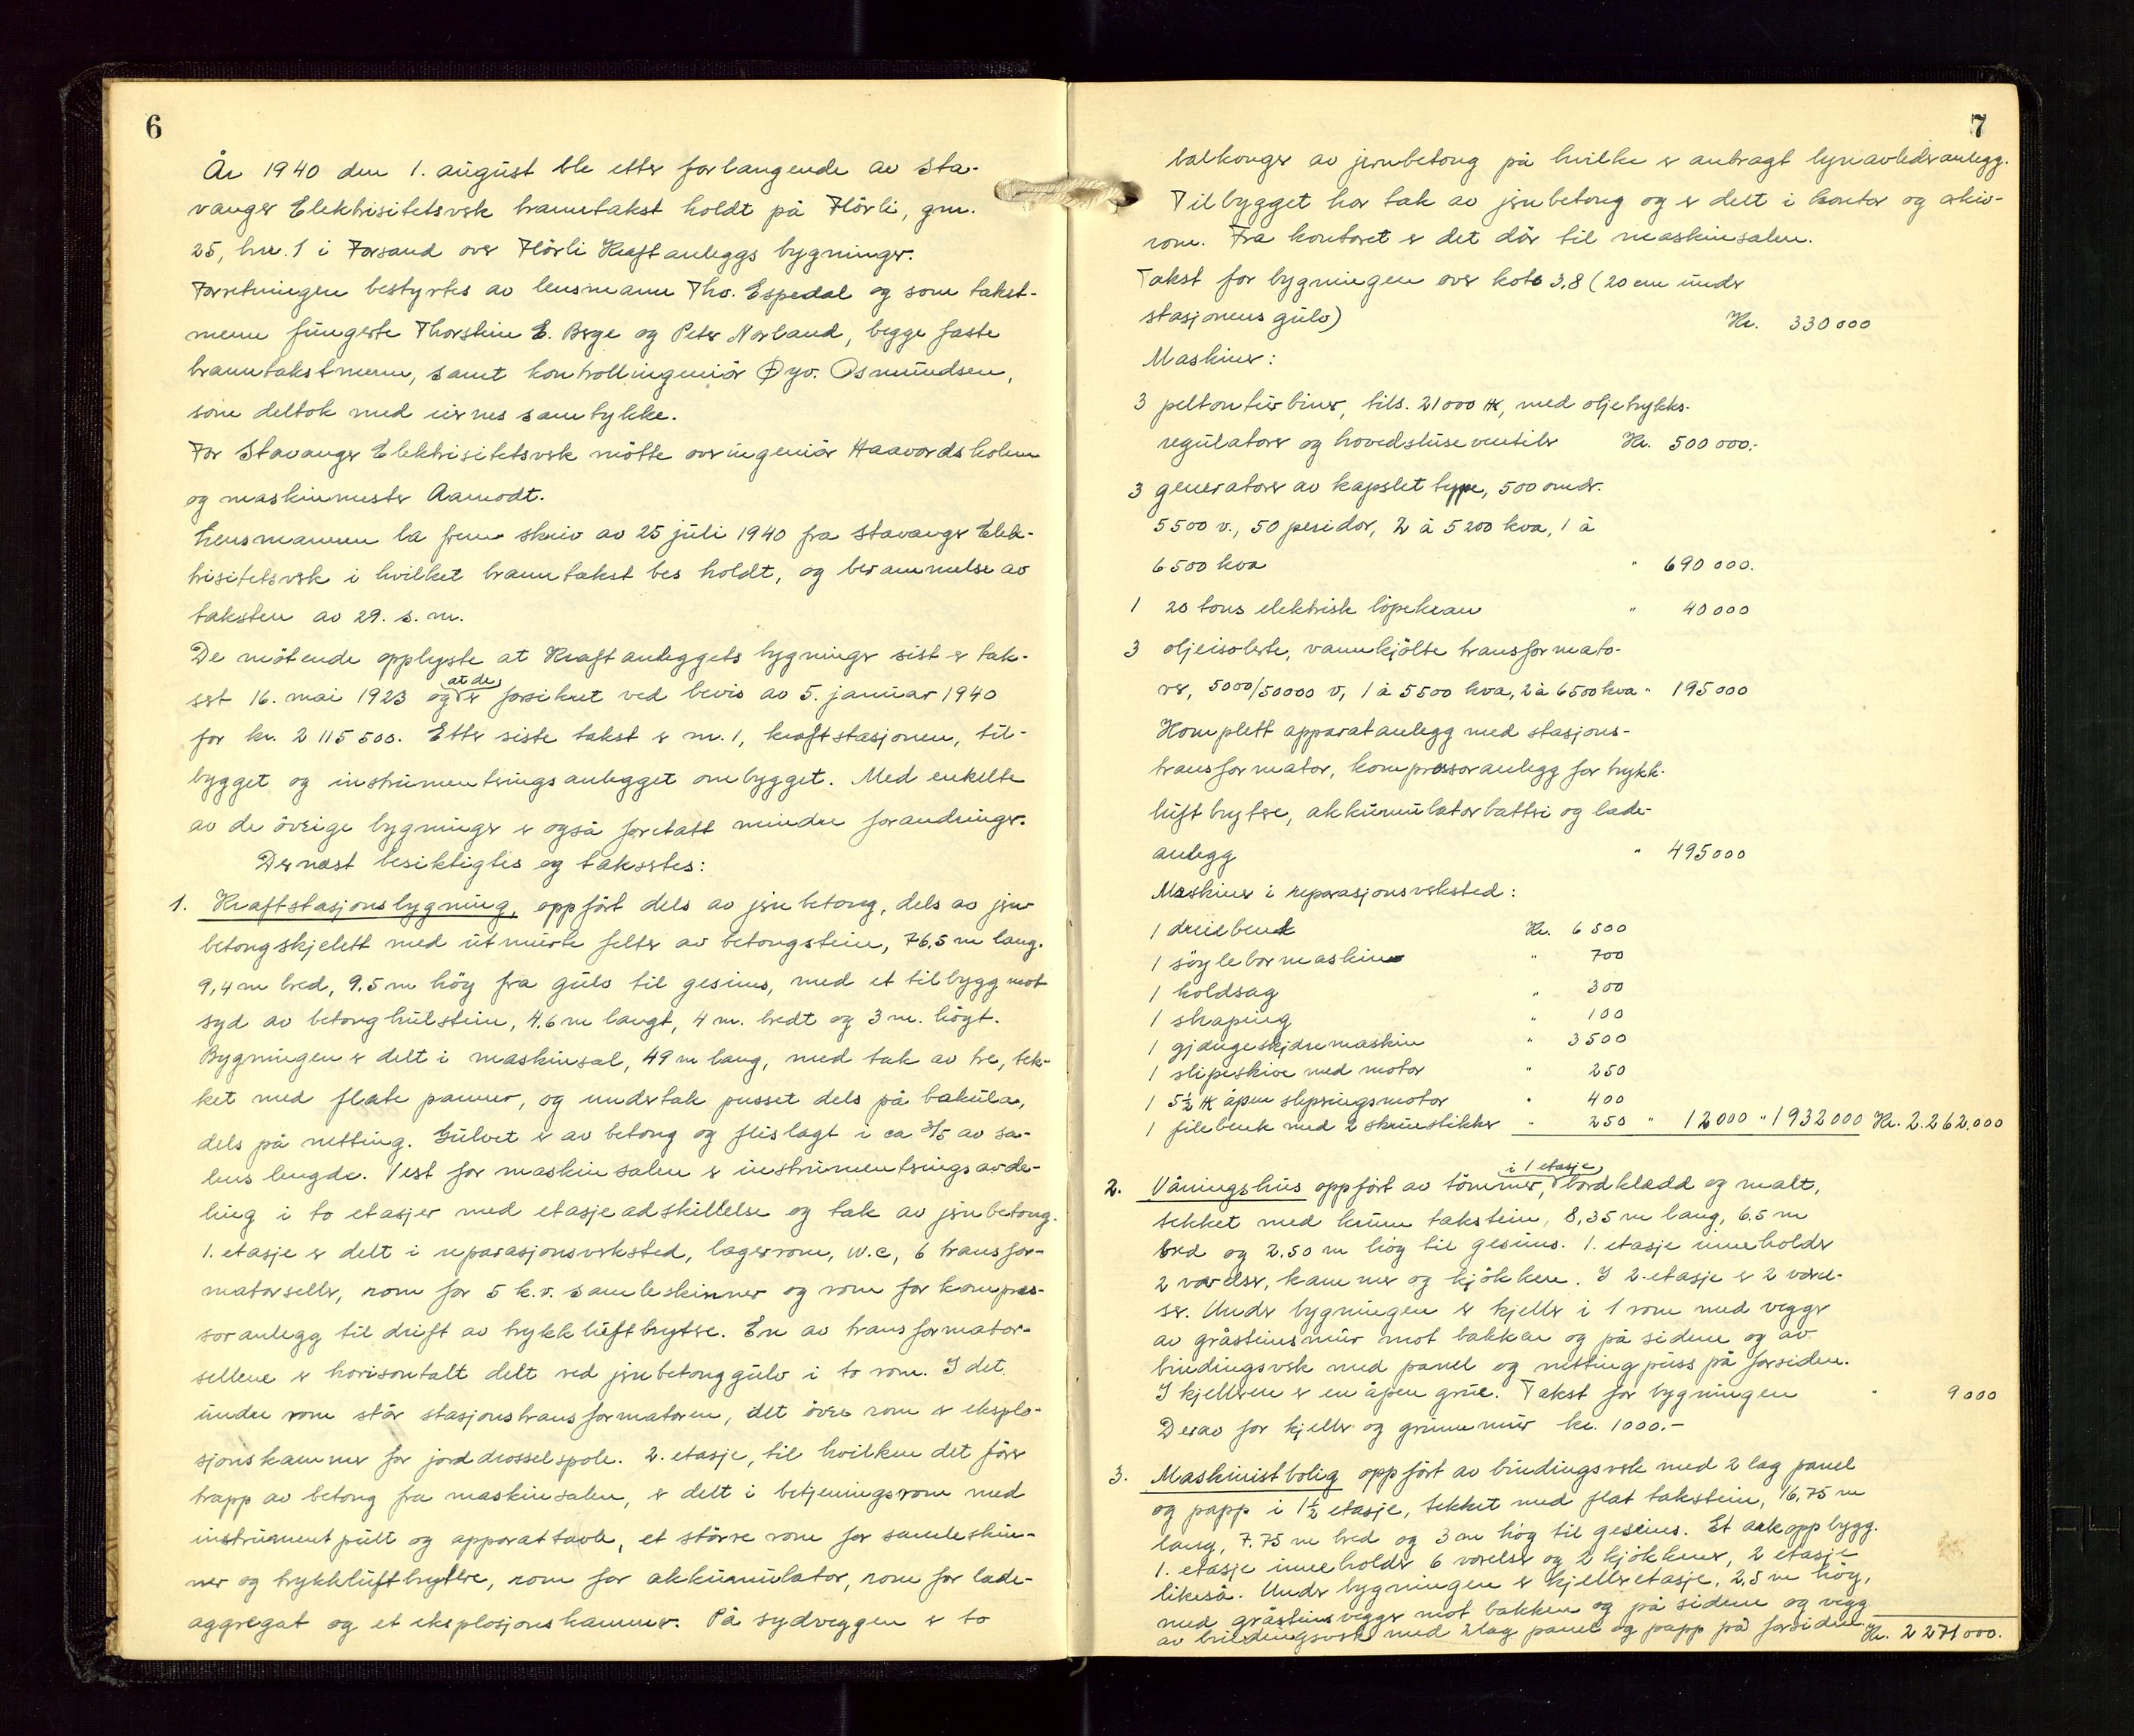 6
År 1940 den 1. august ble etter forlangende av Sta-
vanger Elektrisitetsverk branntakst holdt på Flörli, gnr.
25, bnr. 1 i Forsand over Flörli Kraftanleggs bygninger.
Forretningen bestyrtes av lensmann Tho. Espedal og som takst-
menn fungerte Thorstein E. Berge og Peter Norland, begge faste
branntakstmenn, samt kontrollingeniör Øyv. Osmundsen,
som deltok med eiernes samtykke.
For Stavanger Elektrisitetsverk mötte overingeniör Haavardsholm
og maskinmester Aamodt.
Lensmannen la frem skriv av 25 juli 1940 fra Stavanger Elek-
trisitetsverk i hvilket branntakst bes holdt, og berammelse av
taksten av 29. s. m.
De mötende opplyste at Kraftanleggets bygninger sist er tak-
sert 16. mai 1923 og at de er forsikret ved bevis av 5. januar 1940
for kr. 2 115 500. Etter siste takst er nr. 1, kraftstasjonen, til-
bygget og instrumenteringsanlegget ombygget. Med enkelte
av de övrige bygninger er også foretatt mindre forandringer.
Dernæst besiktigtes og taksertes:
1. Kraftstasjonsbygning, oppfört dels av jernbetong, dels av jern-
betongskjelett med utmurte felter av betongstein, 76,5 m lang.
9,4 m bred, 9.5 m höy fra gulv til gesims, med et tilbygg mot
syd av betonghulstein, 4.6 m langt, 4 m. bredt og 3 m. höyt.
Bygningen er delt i maskinsal, 49 m lang, med tak av tre, tek-
ket med flate panner, og undertak pusset dels på bakula,
dels på netting. Gulvet er av betong og flislagt i ca 3/5 av sa-
lens lengde. Vest for maskinsalen er instrumenteringsavde-
ling i to etasjer med etasjeadskillelse og tak av jernbetong.
1. etasje er delt i reparasjonsverksted, lagerrom, w.c, 6 transfor-
matorceller, rom for 5 k.v. samleskinner og rom for kompres-
soranlegg til drift av trykkluftbrytere. En av transformator-
cellene er horisontalt delt ved jernbetonggulv i to rom. I det
undre rom står stasjonstransformatoren, det övre rom er eksplo-
sjonskammer for jorddrosselspole. 2. etasje, til hvilken det förer
trapp av betong fra maskinsalen, er delt i betjeningsrom med
instrumentpult og apparattavle, et större rom for samleskin-
ner og trykkluftbrytere, rom for akkumulator, rom for lade-
aggregat og et eksplosjonskammer. På sydveggen er to
7
balkonger av jernbetong på hvilke er anbragt lynavlederanlegg.
Tilbygget har tak av jernbetong og er delt i kontor og arkiv-
rom. Fra kontoret er det dör til maskinsalen.
Takst for bygningen over kote 3,8 (20 cm under
stasjonens gulv) Kr. 330 000
Maskiner:
3 peltonturbiner, tils. 21000 HK, med oljetrykks-
regulatorer og hovedsluseventiler Kr. 500 000.-
3 generatorer av kapslet type, 500 omdr.
5500 v., 50 perioder, 2 à 5200 kva, 1 à
6500 kva " 690 000.
1 20 tons elektrisk löpekran " 40 000
3 oljeisolerte, vannkjölte transformato-
rer, 5000/50000 v, 1 à 5500 kva, 2 à 6500 kva " 195 000
Komplett apparatanlegg med stasjons-
transformator, kompressoranlegg for trykk-
luftbrytere, akkumulatorbatteri og lade-
anlegg " 495 000
Maskiner i reparasjonsverksted:
1 dreiebenk Kr. 6 500
1 söyleboremaskin " 700
1 koldsag " 300
1 shaping " 100
1 gjengeskjæremaskin " 3500
1 slipeskive med motor " 250
1 5½ HK åpen slepringsmotor " 400
1 filebenk med 2 skruestikker " 250 " 12 000 " 1 932 000 Kr. 2.262.000
2. Våningshus oppfört av tömmer, i 1 etasje, bordkledd og malt,
tekket med krum takstein, 8,35 m lang, 6.5 m
bred og 2.50 m höy til gesims. 1. etasje inneholder
2 værelser, kammer og kjökken. I 2. etasje er 2 værel-
ser. Under bygningen er kjeller i 1 rom med vegger
av gråsteinsmur mot bakken og på sidene og av
bindingsverk med panel og nettingpuss på forsiden.
I kjelleren er en åpen grue. Takst for bygningen " 9 000
Derav for kjeller og grunnmur kr. 1000.-
3. Maskinistbolig oppfört av bindingsverk med 2 lag panel
og papp i 1½ etasje, tekket med flat takstein, 16,75 m
lang, 7.75 m bred og 3 m höy til gesims. Et arkoppbygg.
1. etasje inneholder 6 værelser og 2 kjökkener, 2 etasje
likeså. Under bygningen er kjelleretasje, 2,5 m höy,
med gråsteinsvegger mot bakken og på sidene og vegg
av bindingsverk med 2 lag panel og papp på forsiden. Kr. 2 271 000.